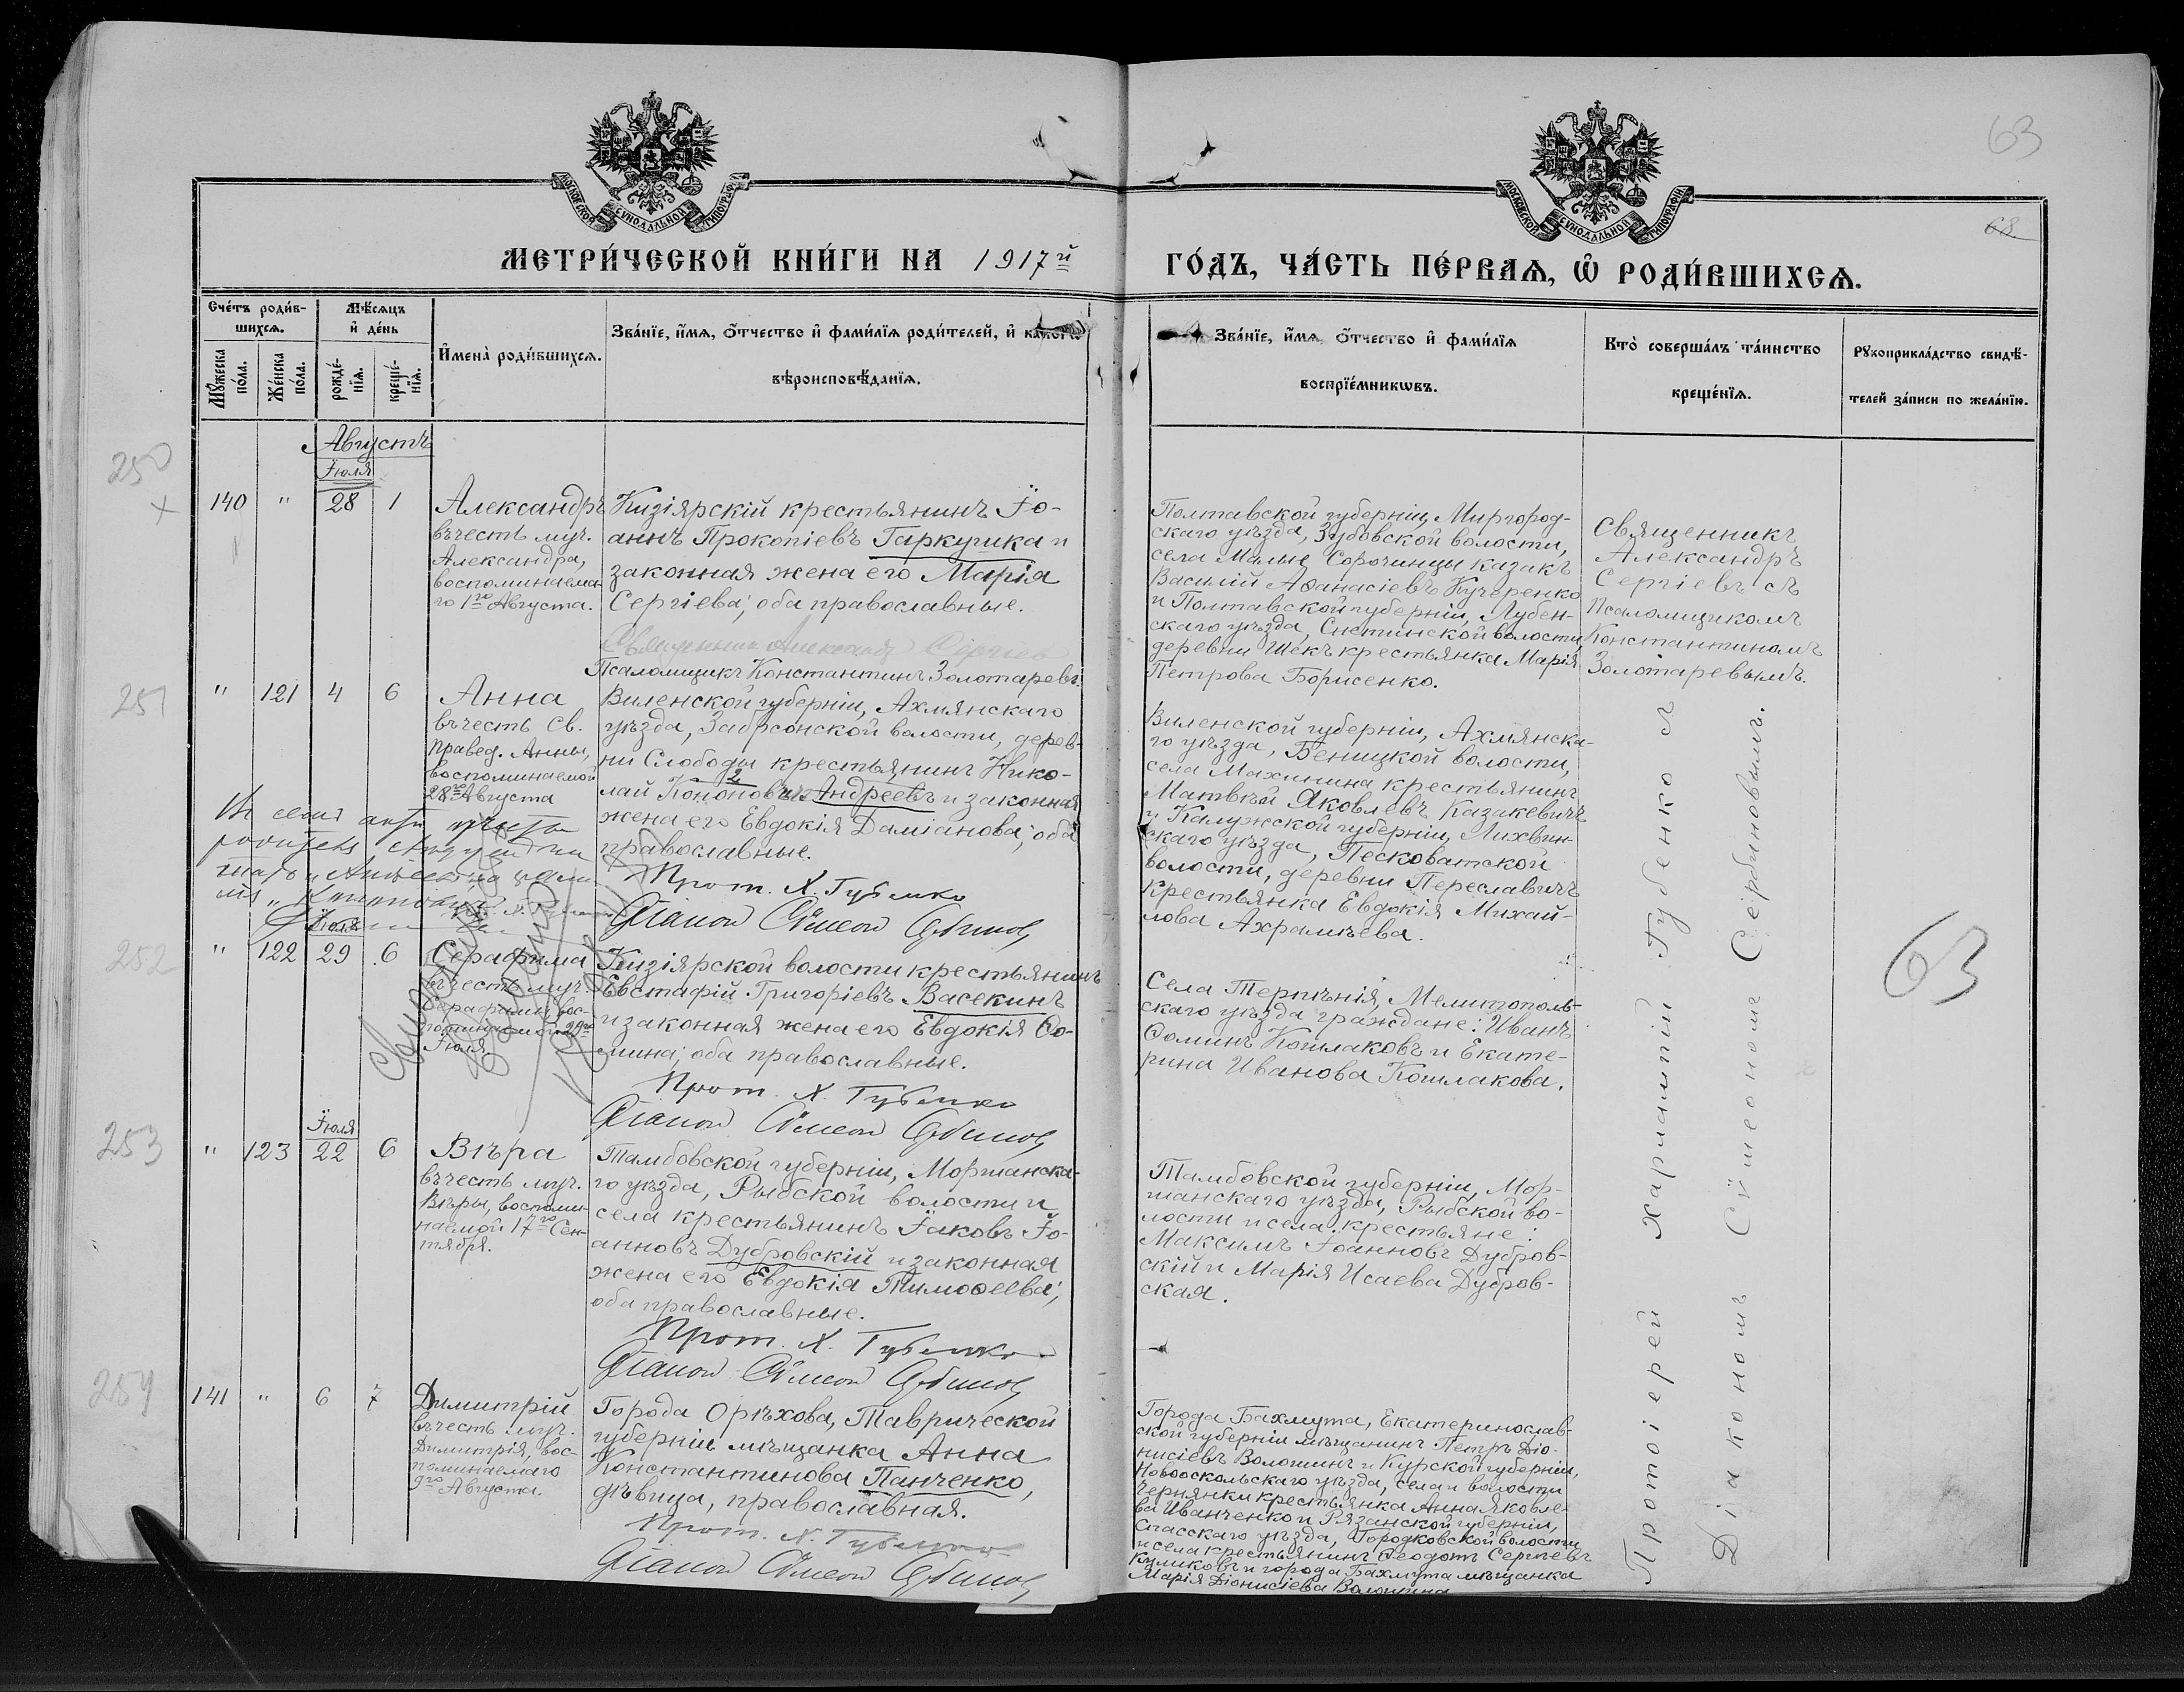 63
63
МОСКОВСКОЙ СѴНОДАЛЬНОЙ ТИПОГРАФІИ
МОСКОВСКОЙ СѴНОДАЛЬНОЙ ТИПОГРАФІИ
МЕТРИ́ЧЕСКОЙ КНИ́ГИ НА 1917й
ГО́ДЪ, ЧА́СТЬ ПЕ́РВАЯ, Ѡ҆ РОДИ́ВШИХСЯ.
Сче́тъ роди́в-
шихся.
Мѣ́сяцъ
и҆ де́нь
Мꙋ́жеска
по́ла.
Же́нска
по́ла.
рожде́-
нїя.
креще́-
нїя.
И҆мена̀ роди́вшихся.
Зва́нїе, и҆́мя, ѻ҆́тчество и҆ фами́лїя роди́телей, и҆
вѣроисповѣ́данїя.
Зва́нїе, и҆́мя, ѻ҆́тчество и҆ фами́лїя
воспрїе́мниковъ.
Кто̀ соверша́лъ та́инство
креще́нїя.
Рꙋкоприкла́дство свидѣ́-
телей за́писи по жела́нїю.
Августъ
Їюля
250
140 " 28 1
Александръ
въ честь муч.
Александра,
воспоминаема-
го 1го Августа.
Кизіярскій крестьянинъ Їо-
аннъ Прокопіевъ Гаркушка и
законная жена его Марія
Сергіева; оба православные.
Священникъ Александръ Сергіевъ
Псаломщикъ Константинъ Золотаревъ.
Полтавской губерніи, Миргород-
скаго уѣзда, Зубовской волости,
села Малые Сорочинцы казакъ
Василій Аѳанасіевъ Кучеренко
и Полтавской губерніи, Лубен-
скаго уѣзда, Снетинской волости,
деревни Шекъ крестьянка Марія
Петрова Борисенко.
Священникъ
Александръ
Сергіевъ съ
Псаломщикомъ
Константиномъ
Золотаревымъ.
251
" 121 4 6
Анна
въ честь Св.
правед. Анны,
воспоминаемой
28го Августа
Виленской губерніи, Ахмянскаго
уѣзда, Забрсонской волости, дерев-
ни Слободы крестьянинъ Нико-
лай Кононовъ Андреевъ и законная
жена его Евдокія Даміанова; оба
православные.
Прот. Х. Губенко
Діаконъ Сѵмеонъ Сербиновъ
Виленской губерніи, Ахмянска-
го уѣзда, Беницкой волости,
села Махинина крестьянинъ
Матвѣй Яковлевъ Казакевичъ
и Калужской губерніи, Лихвин-
скаго уѣзда, Песковатской
волости, деревни Переславичъ
крестьянка Евдокія Михай-
лова Ахрамѣева.
Їюля
252
" 122 29 6
Серафима
въ честь муч.
Серафимы, вос-
поминаемой 29го
Їюля.
Кизіярской волости крестьянинъ
Евстафій Григоріевъ Васекинъ
и законная жена его Евдокія Ѳо-
мина; оба православные.
Прот. Х. Губенко
Діаконъ Сѵмеонъ Сербиновъ
Села Терпѣнія, Мелитополь-
скаго уѣзда граждане: Иванъ
Ѳоминъ Кошлаковъ и Екате-
рина Иванова Кошлакова.
63
Їюля
253
" 123 22 6
Вѣра
въ честь муч.
Вѣры, воспоми-
наемой 17го Сен-
тября.
Тамбовской губерніи, Моршанска-
го уѣзда, Рыбской волости и
села крестьянинъ Їаковъ Їо-
анновъ Дубровскій и законная
жена его Евдокія Тимоѳеева;
оба православные.
Прот. Х. Губенко
Діаконъ Сѵмеонъ Сербиновъ
Тамбовской губерніи, Мор-
шанскаго уѣзда, Рыбской во-
лости и села крестьяне:
Максимъ Їоанновъ Дубров-
скій и Марія Исаева Дубров-
ская.
254
141 " 6 7
Димитрій
въ честь муч.
Димитрія, вос-
поминаемаго
9го Августа.
Города Орѣхова, Таврической
губерніи мѣщанка Анна
Константинова Панченко,
дѣвица, православная.
Прот. Х. Губенко
Діаконъ Сѵмеонъ Сербиновъ
Города Бахмута, Екатеринослав-
ской губерніи мѣщанинъ Петръ Діо-
нисіевъ Волошинъ и Курской губерніи,
Новооскольскаго уѣзда, села и волости
Чернянки крестьянка Анна Яковле-
ва Иванченко и Рязанской губерніи,
Спасскаго уѣзда, Городковской волости
и села крестьянинъ Ѳеодотъ Сергіевъ
Куликовъ и города Бахмута мѣщанка
Марія Діонисіева Волошина
Протоіерей Харлампій Губенко съ
Діакономъ Сѵмеономъ Сербиновымъ.